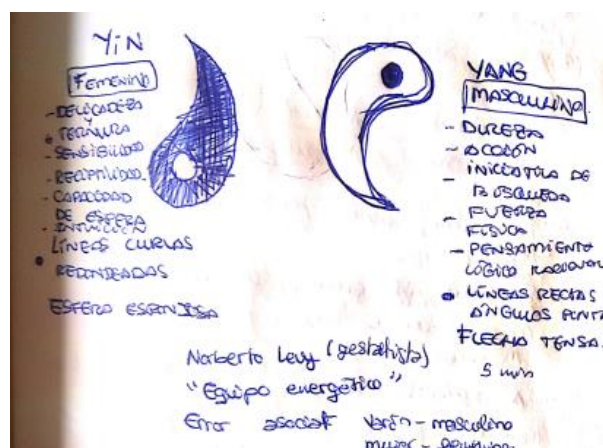 YIN
FEMENINO
- DELICADEZA
Y
TERNURA
- SENSIBILIDAD
- RECEPTIVIDAD
- CAPACIDAD
DE ESPERA
- INTUICIÓN
LÍNEAS CURVAS
REDONDEADAS
ESFERA ESPONJOSA
YANG
MASCULINO
- DUREZA
- ACCIÓN
- INICIATIVA DE
BÚSQUEDA
- FUERZA
FÍSICA
- PENSAMIENTO
LÓGICO RACIONAL
LÍNEAS RECTAS
ÁNGULOS
FLECHA TENSA
5 min
Norberto Levy (gestaltista)
"Equipo energético"
Error asociar varón - masculino
mujer - femenino